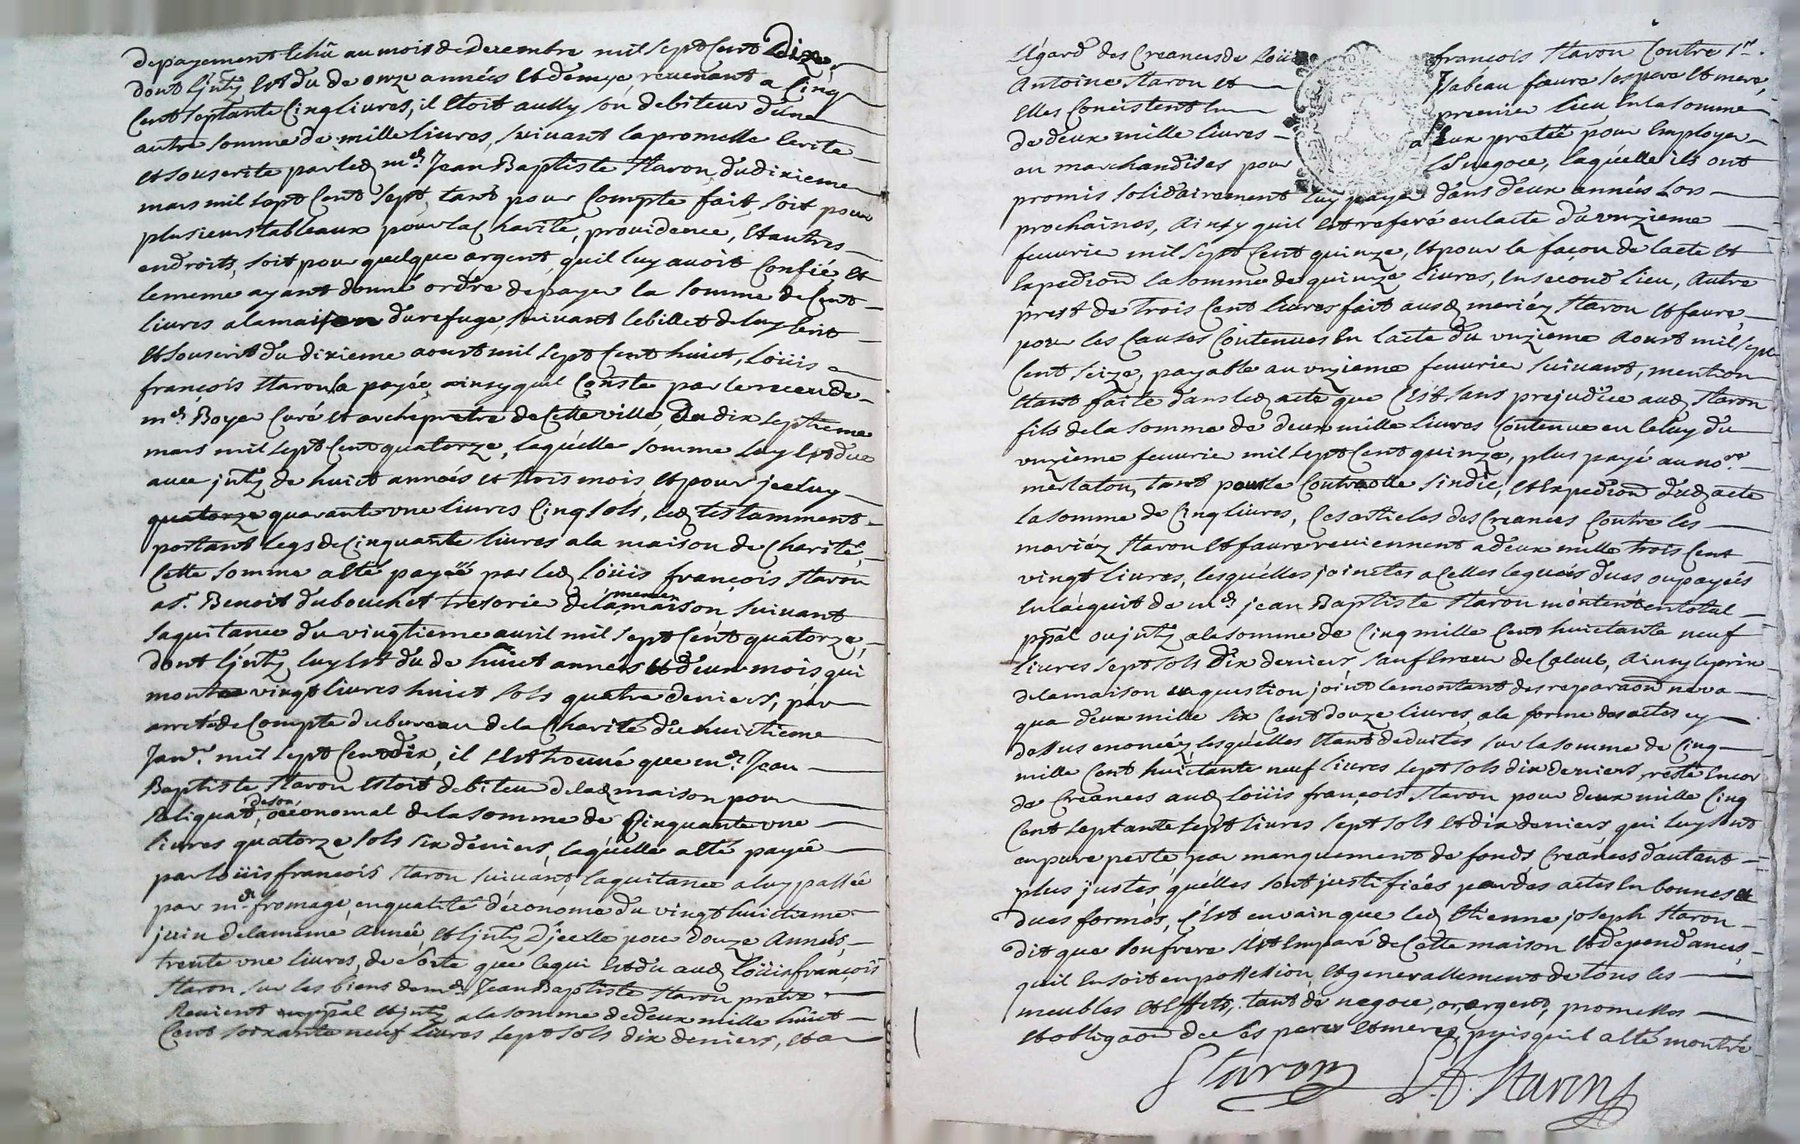 depayement échû au mois de decembre mil sept cent Dize,
dont l'jntz est du de onze années et demye, revenant a Cinq
Cent septante Cinq livres, il etoit aussy son debiteur d'une
autre somme de mille livres, suivant la promesse écrite
et souscrite par led mre Jean Baptiste Staron, du dixieme
mars mil sept Cent sept, tant pour Compte fait, soit pour
plusieurs tableaux pour la Charité, providence, et autres
endroits, soit pour quelque argent, qu'il luy avoit Confié, et
le meme ayant donné ordre de payer la somme de Cent
livres a la maison du refuge, suivant le billet de luy écrit
et souscrit du dixieme aoust mil sept Cent huict, Loüis
françois Staron l'a payée ainsy qu'il Conste par le receu de
mre Boyer Curé et archeprêtre de du dix septieme
mars mil sept Cent quatorze, laquelle somme luy est due
avec jntz de huict années et trois mois, et pour jceluy
quatorze quarante une livres Cinq sols, led testamment
portant legs de Cinquante livres a la maison de Charité,
Cette somme a été payée par led loüis françois Staron
a sr. Benoit dubouchet tresorie de la meme maison, suivant
sa quitance du vingtieme avril mil sept Cent quatorze,
dont l'jntz luy est du de huict années et deux mois, qui
monte vingt livres huict sols quatre deniers, par
arreté de Compte du bureau de la Charité du huictieme
Janer mil sept Cent dix, il s'est trouvé que mre Jean
Baptiste Staron estoit debiteur de lad maison pour
Reliquat, de son œconomat de la somme de Cinquante une
livres quatorze sols six deniers, laquelle a été payée
par loüis françois Staron suivant la quitance a luy passée
par mre fromage, en qualité d'économe du vingt huictieme
juin de la meme année, et l'jntz d'jcelle pour douze Années,
trente une livres, de sorte que ce qui est du aud loüis françois
Staron sur les biens de mre Jean Baptiste Staron pretre
Revient en ppal et jntz a la somme de deux mille huict
Cent soixante neuf livres sept sols dix deniers, et a
L'égard des Creances de Loüis françois Staron Contre Sr.
Antoine Staron et Isabeau faure ses pere et mere,
Elles Consistent En premier lieu En la somme
de deux mille livres a Eux pretée pour Employer
en marchandises pour negoce, laquelle ils ont
promis solidairement luy payer dans deux années lors
prochaines, Ainsy qu'il est referé en l'acte d'unzieme
feuvrie mil sept Cent quinze, et pour la façon de l'acte et
Expedion la somme de quinze livres, En second lieu, Autre
prest de trois Cent livres fait ausd mariéz Staron et faure,
pour les Causes Contenues En l'acte du unzieme Aoust mil sept
Cent seize, payable au unzieme feuvrie suivant, mention
étant faite dans led acte que C'est sans prejudice aud Staron
fils de la somme de deux mille livres Contenue en Celuy du
unzieme feuvrie mil sept Cent quinze, plus payé au nore
meslaton, tant pour le Controolle sindic, et Expedion dud acte
la somme de Cinq livres, Ces articles des Creances Contre les
mariéz Staron et faure reviennent a deux mille trois Cent
vingt livres, lesquelles jointes a Celles le quois dues ou payés
En l'acquit de mre jean Baptiste Staron montent en total
ppal ou jntz a la somme de Cinq mille Cent huictante neuf
livres sept sols dix deniers, sauf Erreur de Calcul, Ainsy le prix
de la maison en question joint le montant des reparaôn ne va
qu'a deux mille six Cent douze livres, a la forme des actes cy
dessus enoncéz, lesquelles étant deduites sur la somme de Cinq
mille Cent huictante neuf livres sept sols dix deniers, reste Encor
de Creances aud Loüis françois Staron pour deux mille Cinq
Cent septante sept livres sept sols et dix deniers qui luy sont
en pure perte, par manquement de fonds Creances d'autant
plus justes, qu'elles sont justifiées par des actes En bonnes et
dues formes, C'est en vain que led Etienne joseph Staron
dit que son frere s'est Emparé de Cette maison et dependances,
qu'il En soit en possession, et generallement de tous les
meubles et effets, tant de negoce, or, argent, promesses
et obligaôn de ses peres et meres, puisqu'il a été montré
Staron L.f. Staron